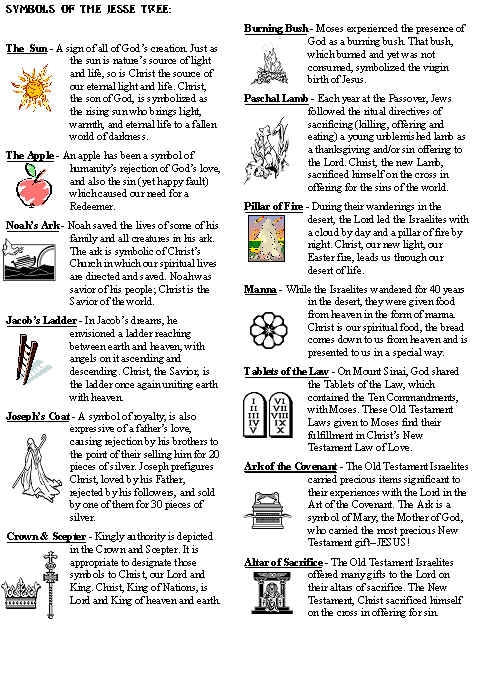 SYMBOLS OF THE JESSE TREE:
The Sun - A sign of all of God's creation. Just as
the sun is nature's source of light
and life, so is Christ the source of
our eternal light and life. Christ,
the son of God, is symbolized as
the rising sun who brings light,
warmth, and eternal life to a fallen
world of darkness.
The Apple - An apple has been a symbol of
humanity's rejection of God's love,
and also the sin (yet happy fault)
which caused our need for a
Redeemer.
Noah's Ark - Noah saved the lives of some of his
family and all creatures in his ark.
The ark is symbolic of Christ's
Church in which our spiritual lives
are directed and saved. Noah was
savior of his people; Christ is the
Savior of the world.
Jacob's Ladder - In Jacob's dreams, he
envisioned a ladder reaching
between earth and heaven, with
angels on it ascending and
descending. Christ, the Savior, is
the ladder once again uniting earth
with heaven.
Joseph's Coat - A symbol of royalty, is also
expressive of a father's love,
causing rejection by his brothers to
the point of their selling him for 20
pieces of silver. Joseph prefigures
Christ, loved by his Father,
rejected by his followers, and sold
by one of them for 30 pieces of
silver.
Crown & Scepter - Kingly authority is depicted
in the Crown and Scepter. It is
appropriate to designate those
symbols to Christ, our Lord and
King. Christ, King of Nations, is
Lord and King of heaven and earth.
Burning Bush - Moses experienced the presence of
God as a burning bush. That bush,
which burned and yet was not
consumed, symbolized the virgin
birth of Jesus.
Paschal Lamb - Each year at the Passover, Jews
followed the ritual directives of
sacrificing (killing, offering and
eating) a young unblemished lamb as
a thanksgiving and/or sin offering to
the Lord. Christ, the new Lamb,
sacrificed himself on the cross in
offering for the sins of the world.
Pillar of Fire - During their wanderings in the
desert, the Lord led the Israelites with
a cloud by day and a pillar of fire by
night. Christ, our new light, our
Easter fire, leads us through our
desert of life.
Manna - While the Israelites wandered for 40 years
in the desert, they were given food
from heaven in the form of manna.
Christ is our spiritual food, the bread
comes down to us from heaven and is
presented to us in a special way.
Tablets of the Law - On Mount Sinai, God shared
the Tablets of the Law, which
contained the Ten Commandments,
with Moses. These Old Testament
Laws given to Moses find their
fulfillment in Christ's New
Testament Law of Love.
I VI
II VII
III VIII
IV IX
V X
Ark of the Covenant - The Old Testament Israelites
carried precious items significant to
their experiences with the Lord in the
Art of the Covenant. The Ark is a
symbol of Mary, the Mother of God,
who carried the most precious New
Testament gift--JESUS!
Altar of Sacrifice - The Old Testament Israelites
offered many gifts to the Lord on
their altars of sacrifice. The New
Testament, Christ sacrificed himself
on the cross in offering for sin.